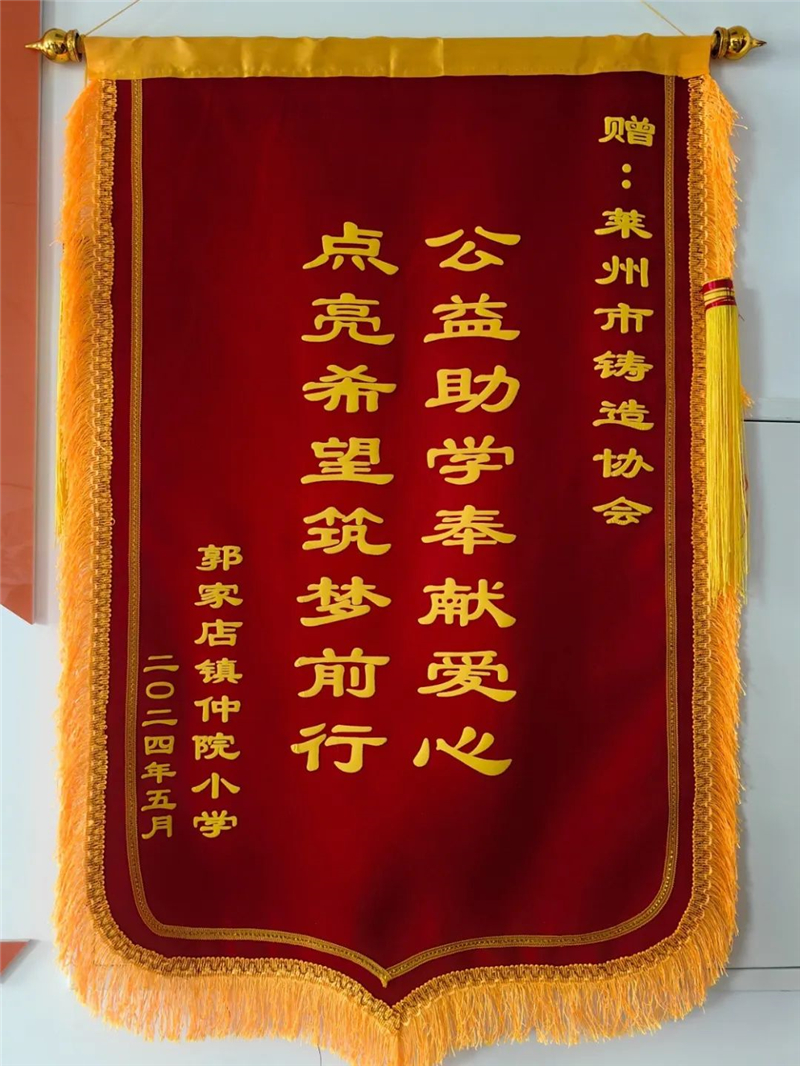 赠：莱州市铸造协会
公益助学奉献爱心
点亮希望筑梦前行
郭家店镇仲院小学
二〇二四年五月